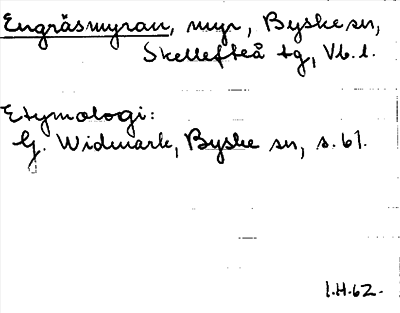 Engräsmyran, myr, Byske sn,
Skellefteå tg, Vb. l.
Etymologi:
G. Widmark, Byske sn, s. 61.
I.H.62.